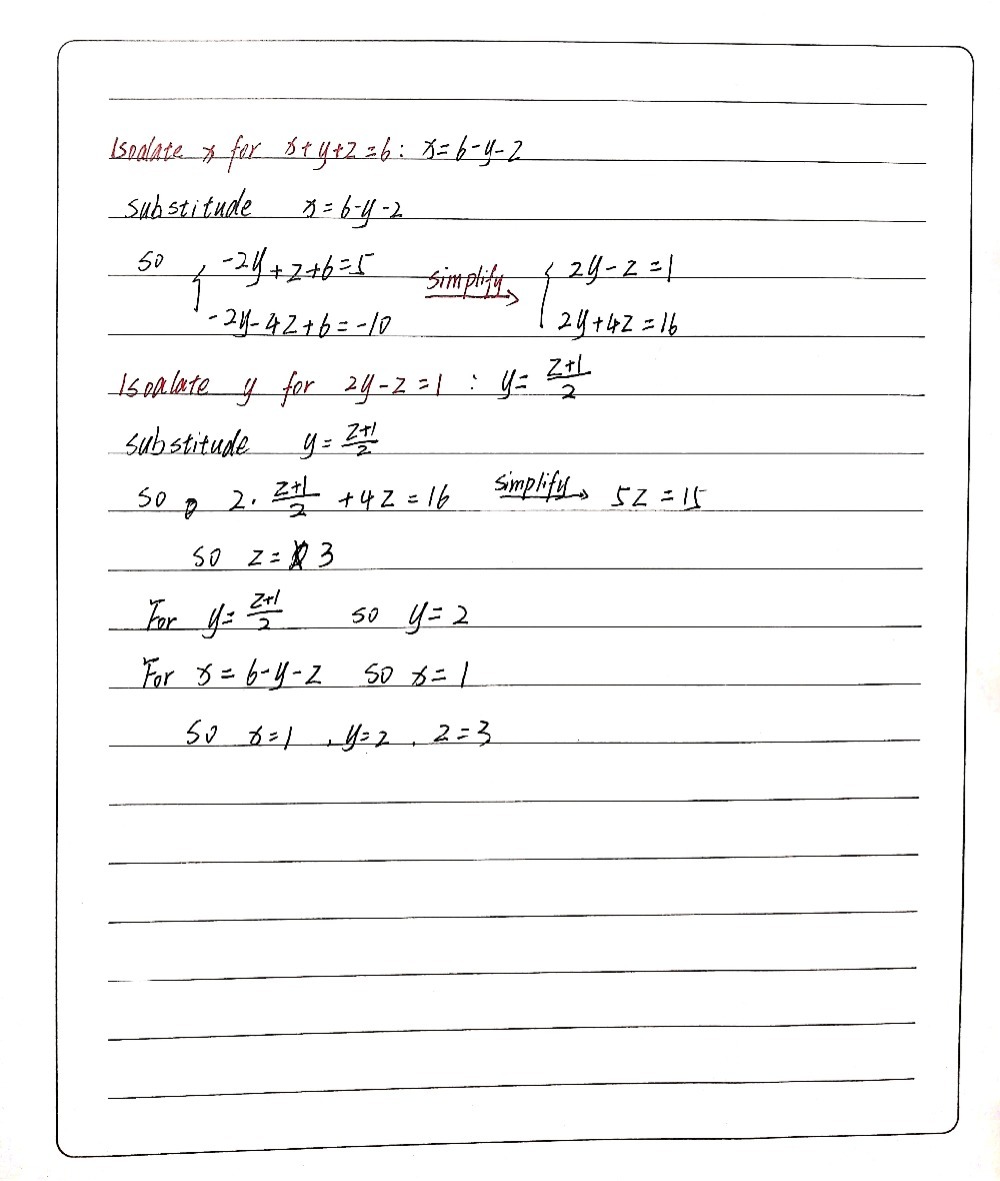 Isoalate x for x+y+z=6: x=6-y-z
substitude x=6-y-z
so { -2y+z+6=5 simplify→ { 2y-z=1
-2y-4z+6=-10 2y+4z=16
Isoalate y for 2y-z=1 : y= (z+1)/2
substitude y= (z+1)/2
so 2· (z+1)/2 +4z=16 simplify→ 5z=15
so z= 3
For y= (z+1)/2 so y=2
For x=6-y-z so x=1
so x=1 , y=2 , z=3